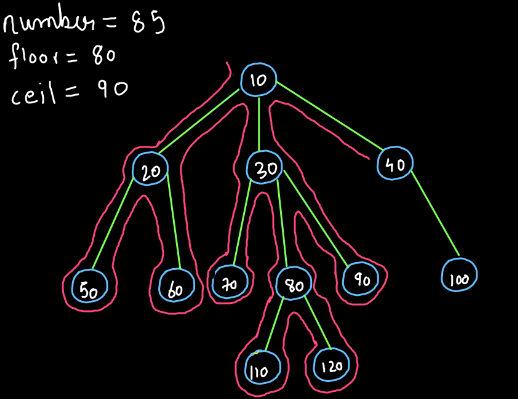 number = 85
floor = 80
ceil = 90
10
20
30
40
50
60
70
80
90
100
110
120